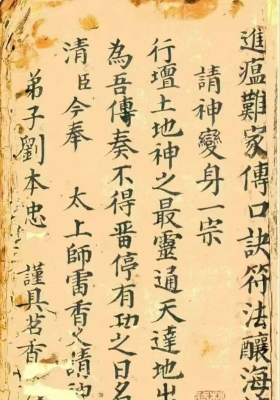 進瘟難家傳口訣符法釀海
請神變身一宗
行壇土地神之最靈通天達地出
為吾傳奏不得畱停有功之日名
清臣今奉 太上師雷香文請神
弟子劉本忠 謹具茗香